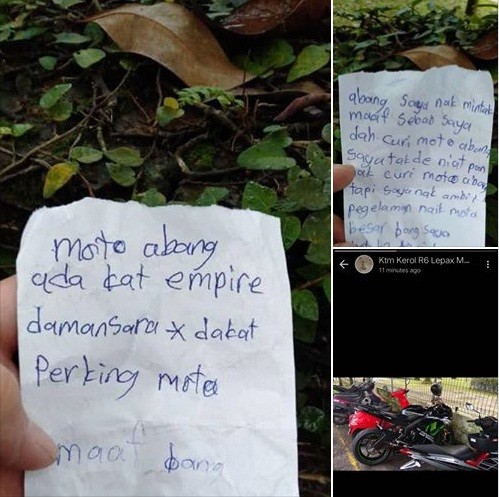 moto abang
ada kat empire
damansara x dakat
Perking mota
maaf bang
abang saya nak mintak
maaf sebab saya
dah curi moto abang
saya tak de niat pon
nak curi motoo abang
tapi saya nak ambik
pegelaman naik moto
besar bang saya
Ktm Kerol R6 Lepax M...
11 minutes ago